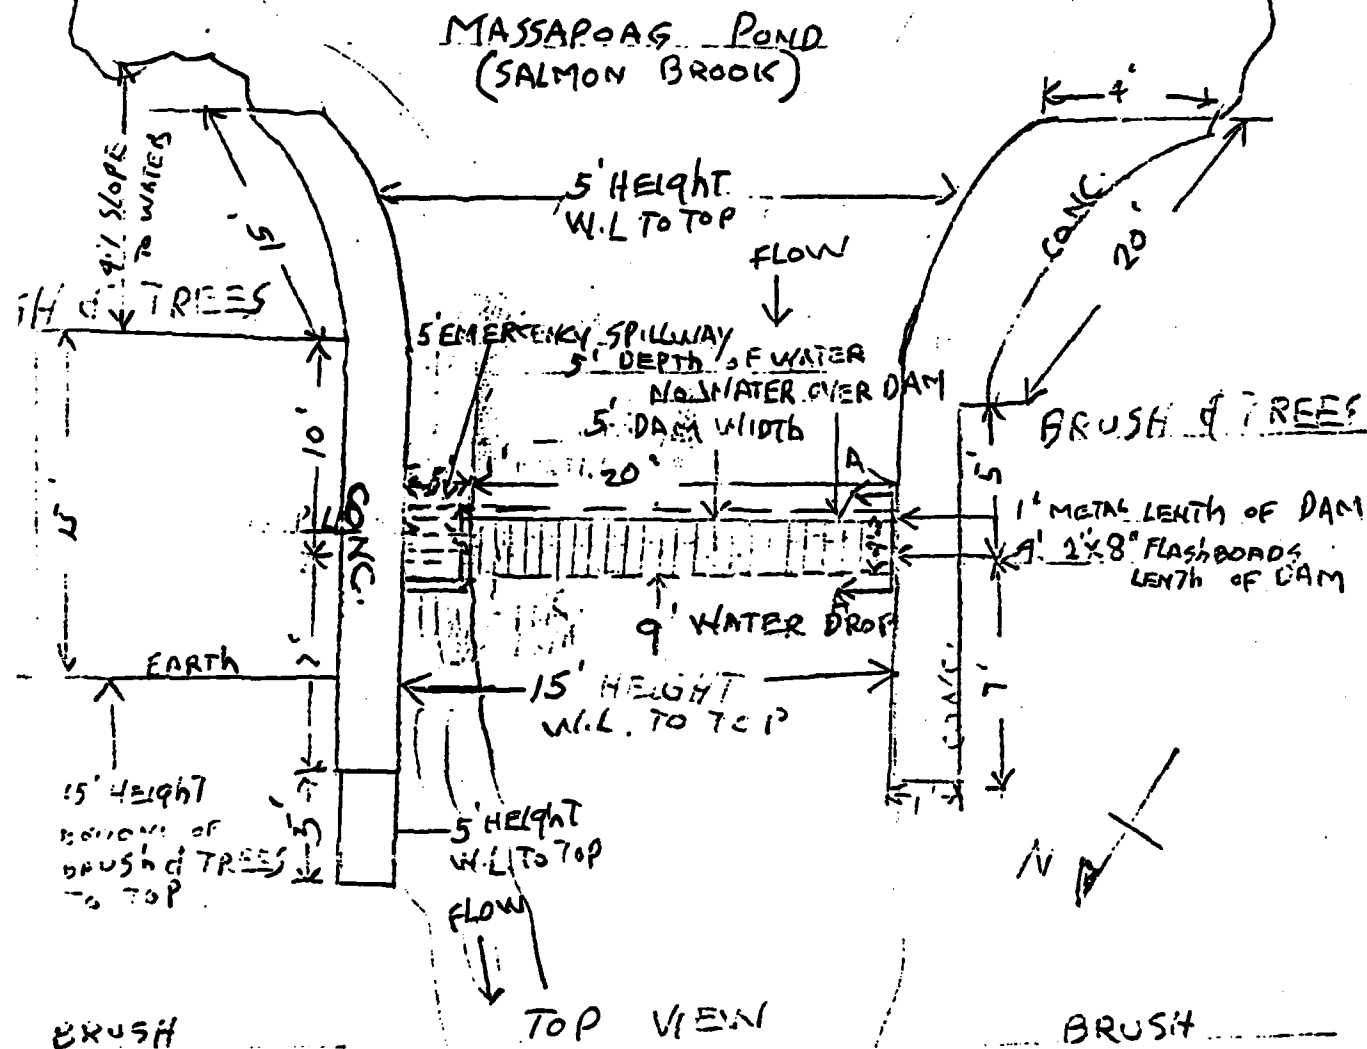 MASSAPOAG POND
(SALMON BROOK)
4'
SLOPE
TO WATER
15'
5' HEIGHT
W.L TO TOP
CONC.
20'
FLOW
TREES
5' EMERGENCY SPILLWAY
5' DEPTH OF WATER
NO WATER OVER DAM
5' DAM WIDTH
BRUSH & TREES
10'
5'
20'
A
5'
CONC.
1' METAL LENTH OF DAM
4' 2'X8" FLASHBOADS
LENTH OF DAM
9' WATER DROP
EARTH
15' HEIGHT
W.L. TO TOP
CONC.
7'
7'
1'
15' HEIGHT
OF
BRUSH & TREES
TO TOP
5'
5' HEIGHT
W.L. TO TOP
N
FLOW
TOP VIEW
BRUSH
BRUSH